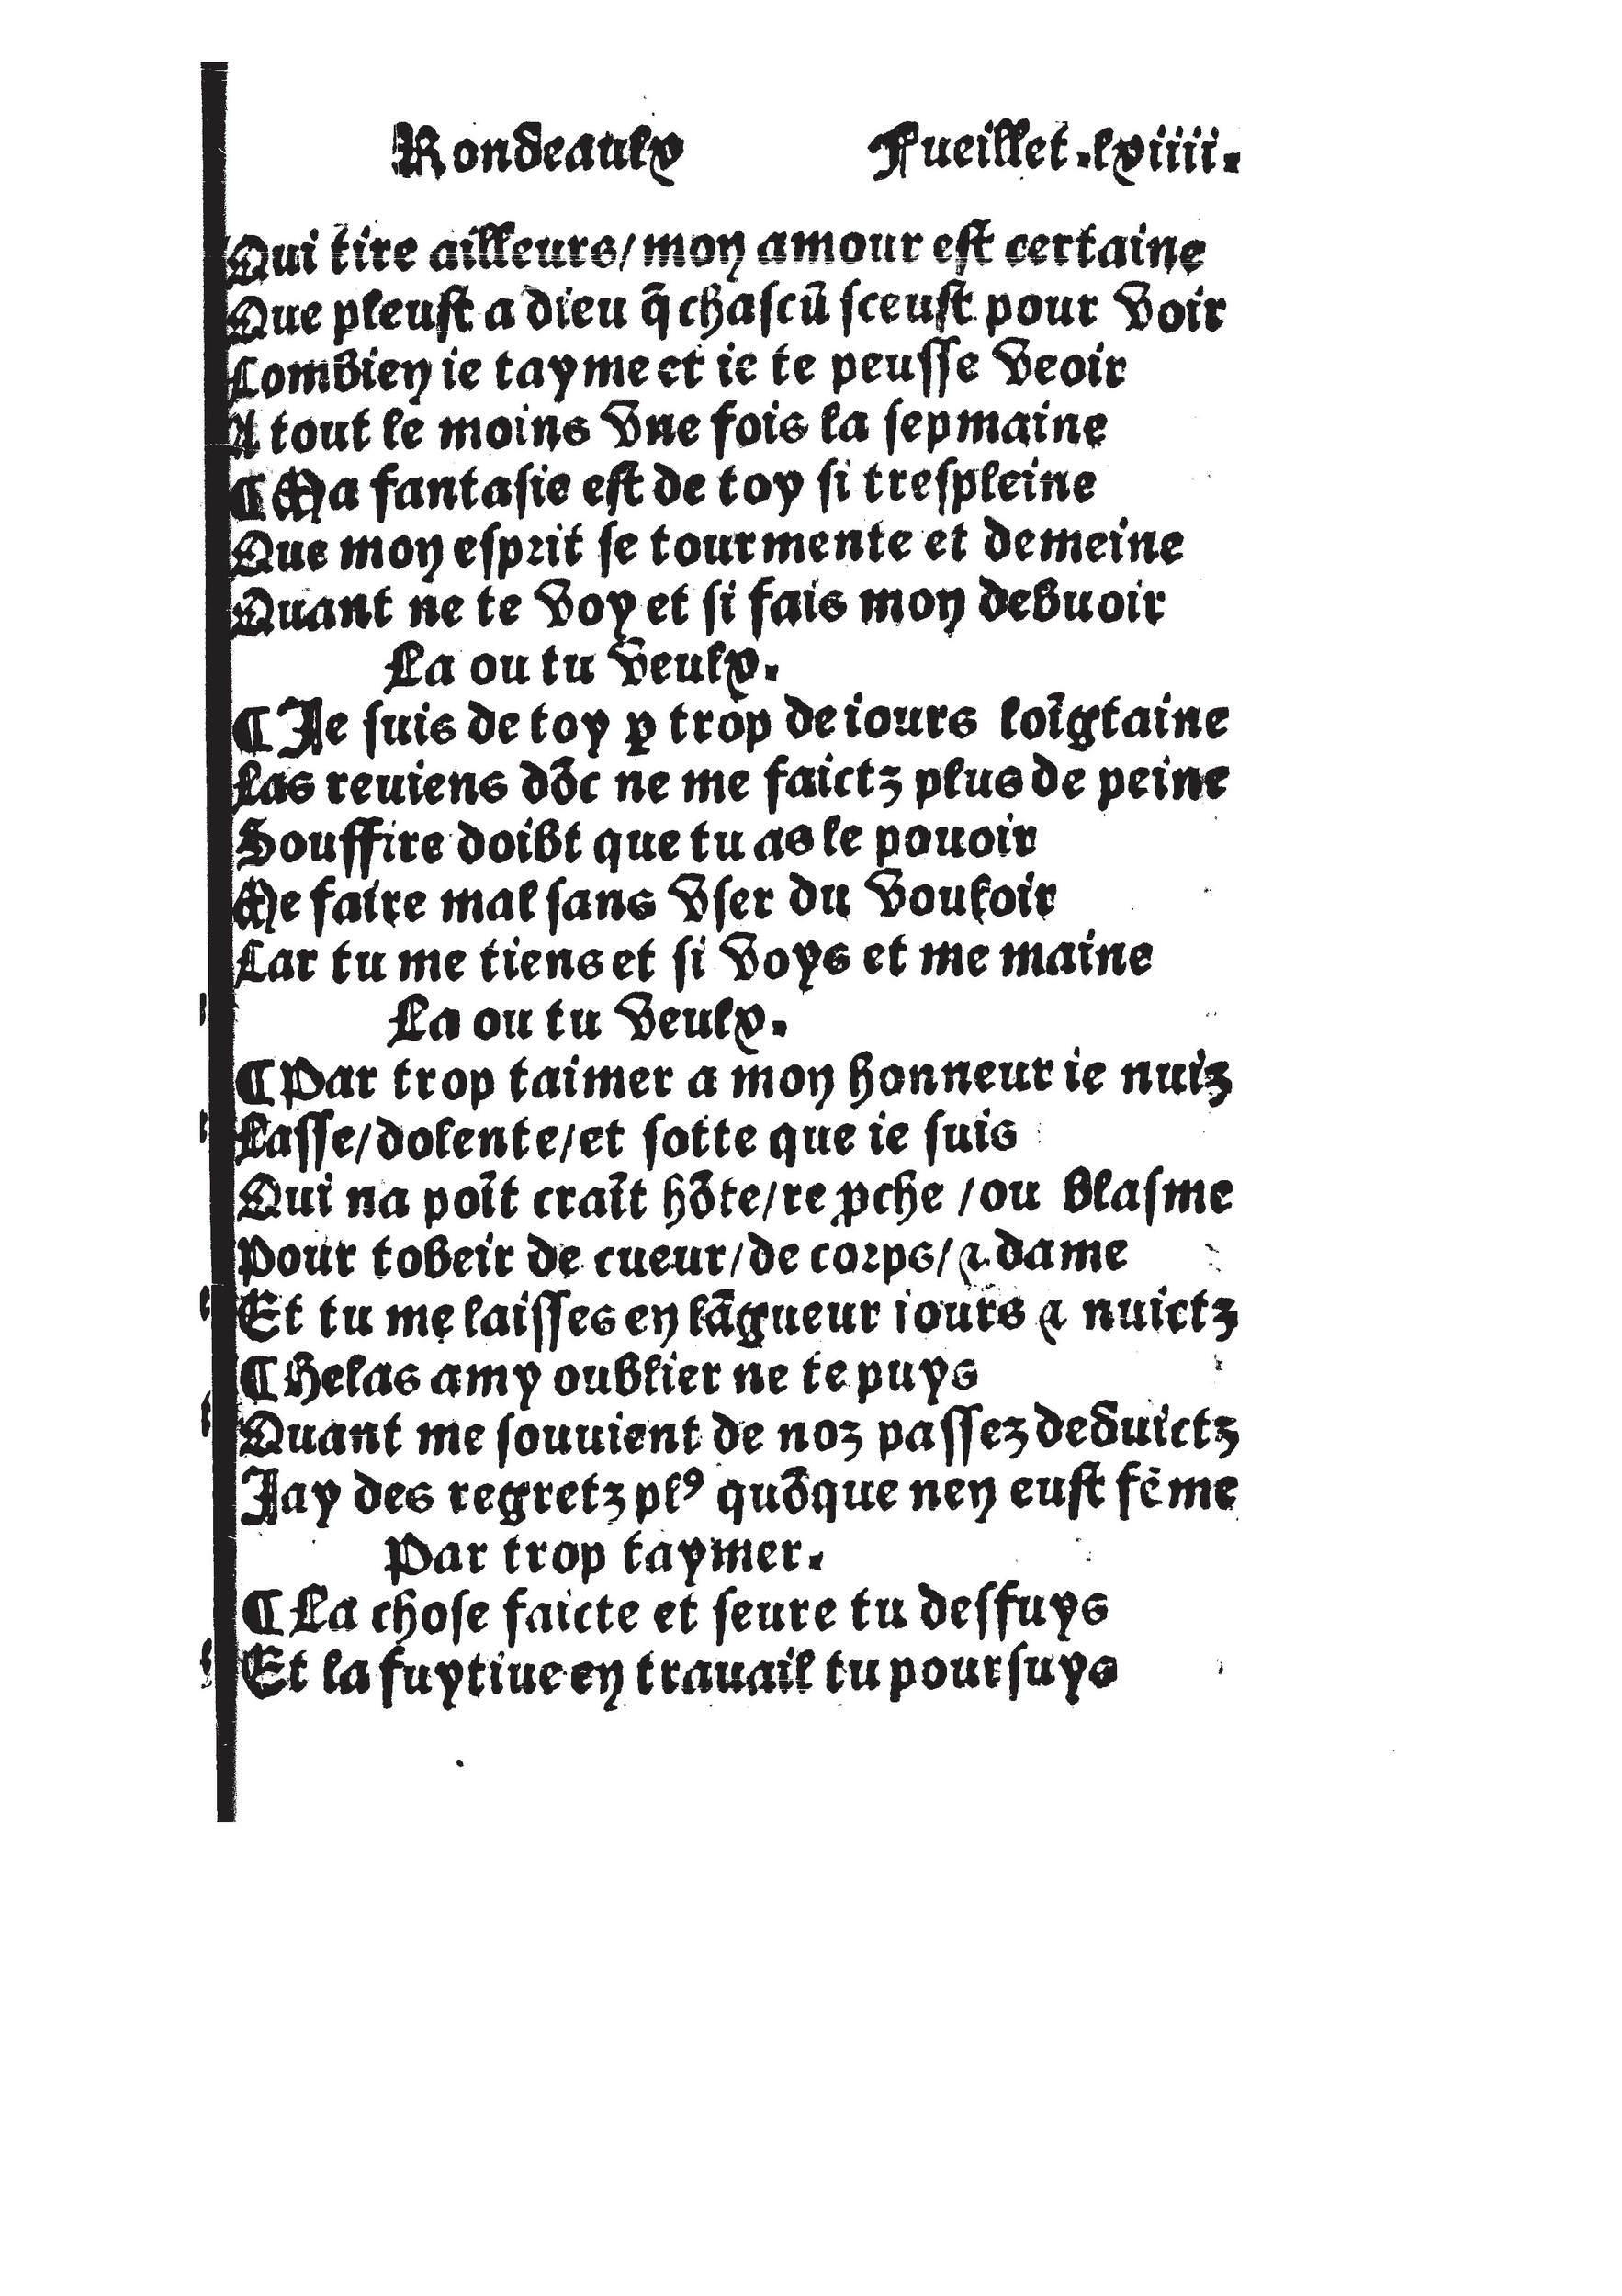 Rondeaulx Fueillet .lxiiii.
Qui tire ailleurs/mon amour est certaine
Que pleust a dieu q̃ chascũ sceust pour voir
Combien ie tayme et ie te peusse veoir
A tout le moins vne fois la sepmaine
¶Ma fantasie est de toy si trespleine
Que mon esprit se tourmente et demeine
Quant ne te voy et si fais mon debuoir
La ou tu veulx.
¶Je suis de toy ꝑ trop de iours loĩgtaine
Las reuiens dõc ne me faictz plus de peine
Souffire doibt que tu as le pouoir
Me faire mal sans vser du vouloir
Car tu me tiens et si voys et me maine
La ou tu veulx.
¶Par trop taimer a mon honneur ie nuiz
Lasse/dolente/et sotte que ie suis
Qui na poĩt craĩt hõte/reꝓche /ou blasme
Pour tobeir de cueur/de corps/⁊ dame
Et tu me laisses en lãgueur iours ⁊ nuictz
¶Helas amy oublier ne te puys
Quant me souuient de noz passez deduictz
Jay des regretz plꝰ quõque nen eust fẽme
Par trop taymer.
¶La chose faicte et seure tu desfuys
Et la fuytiue en trauail tu poursuys